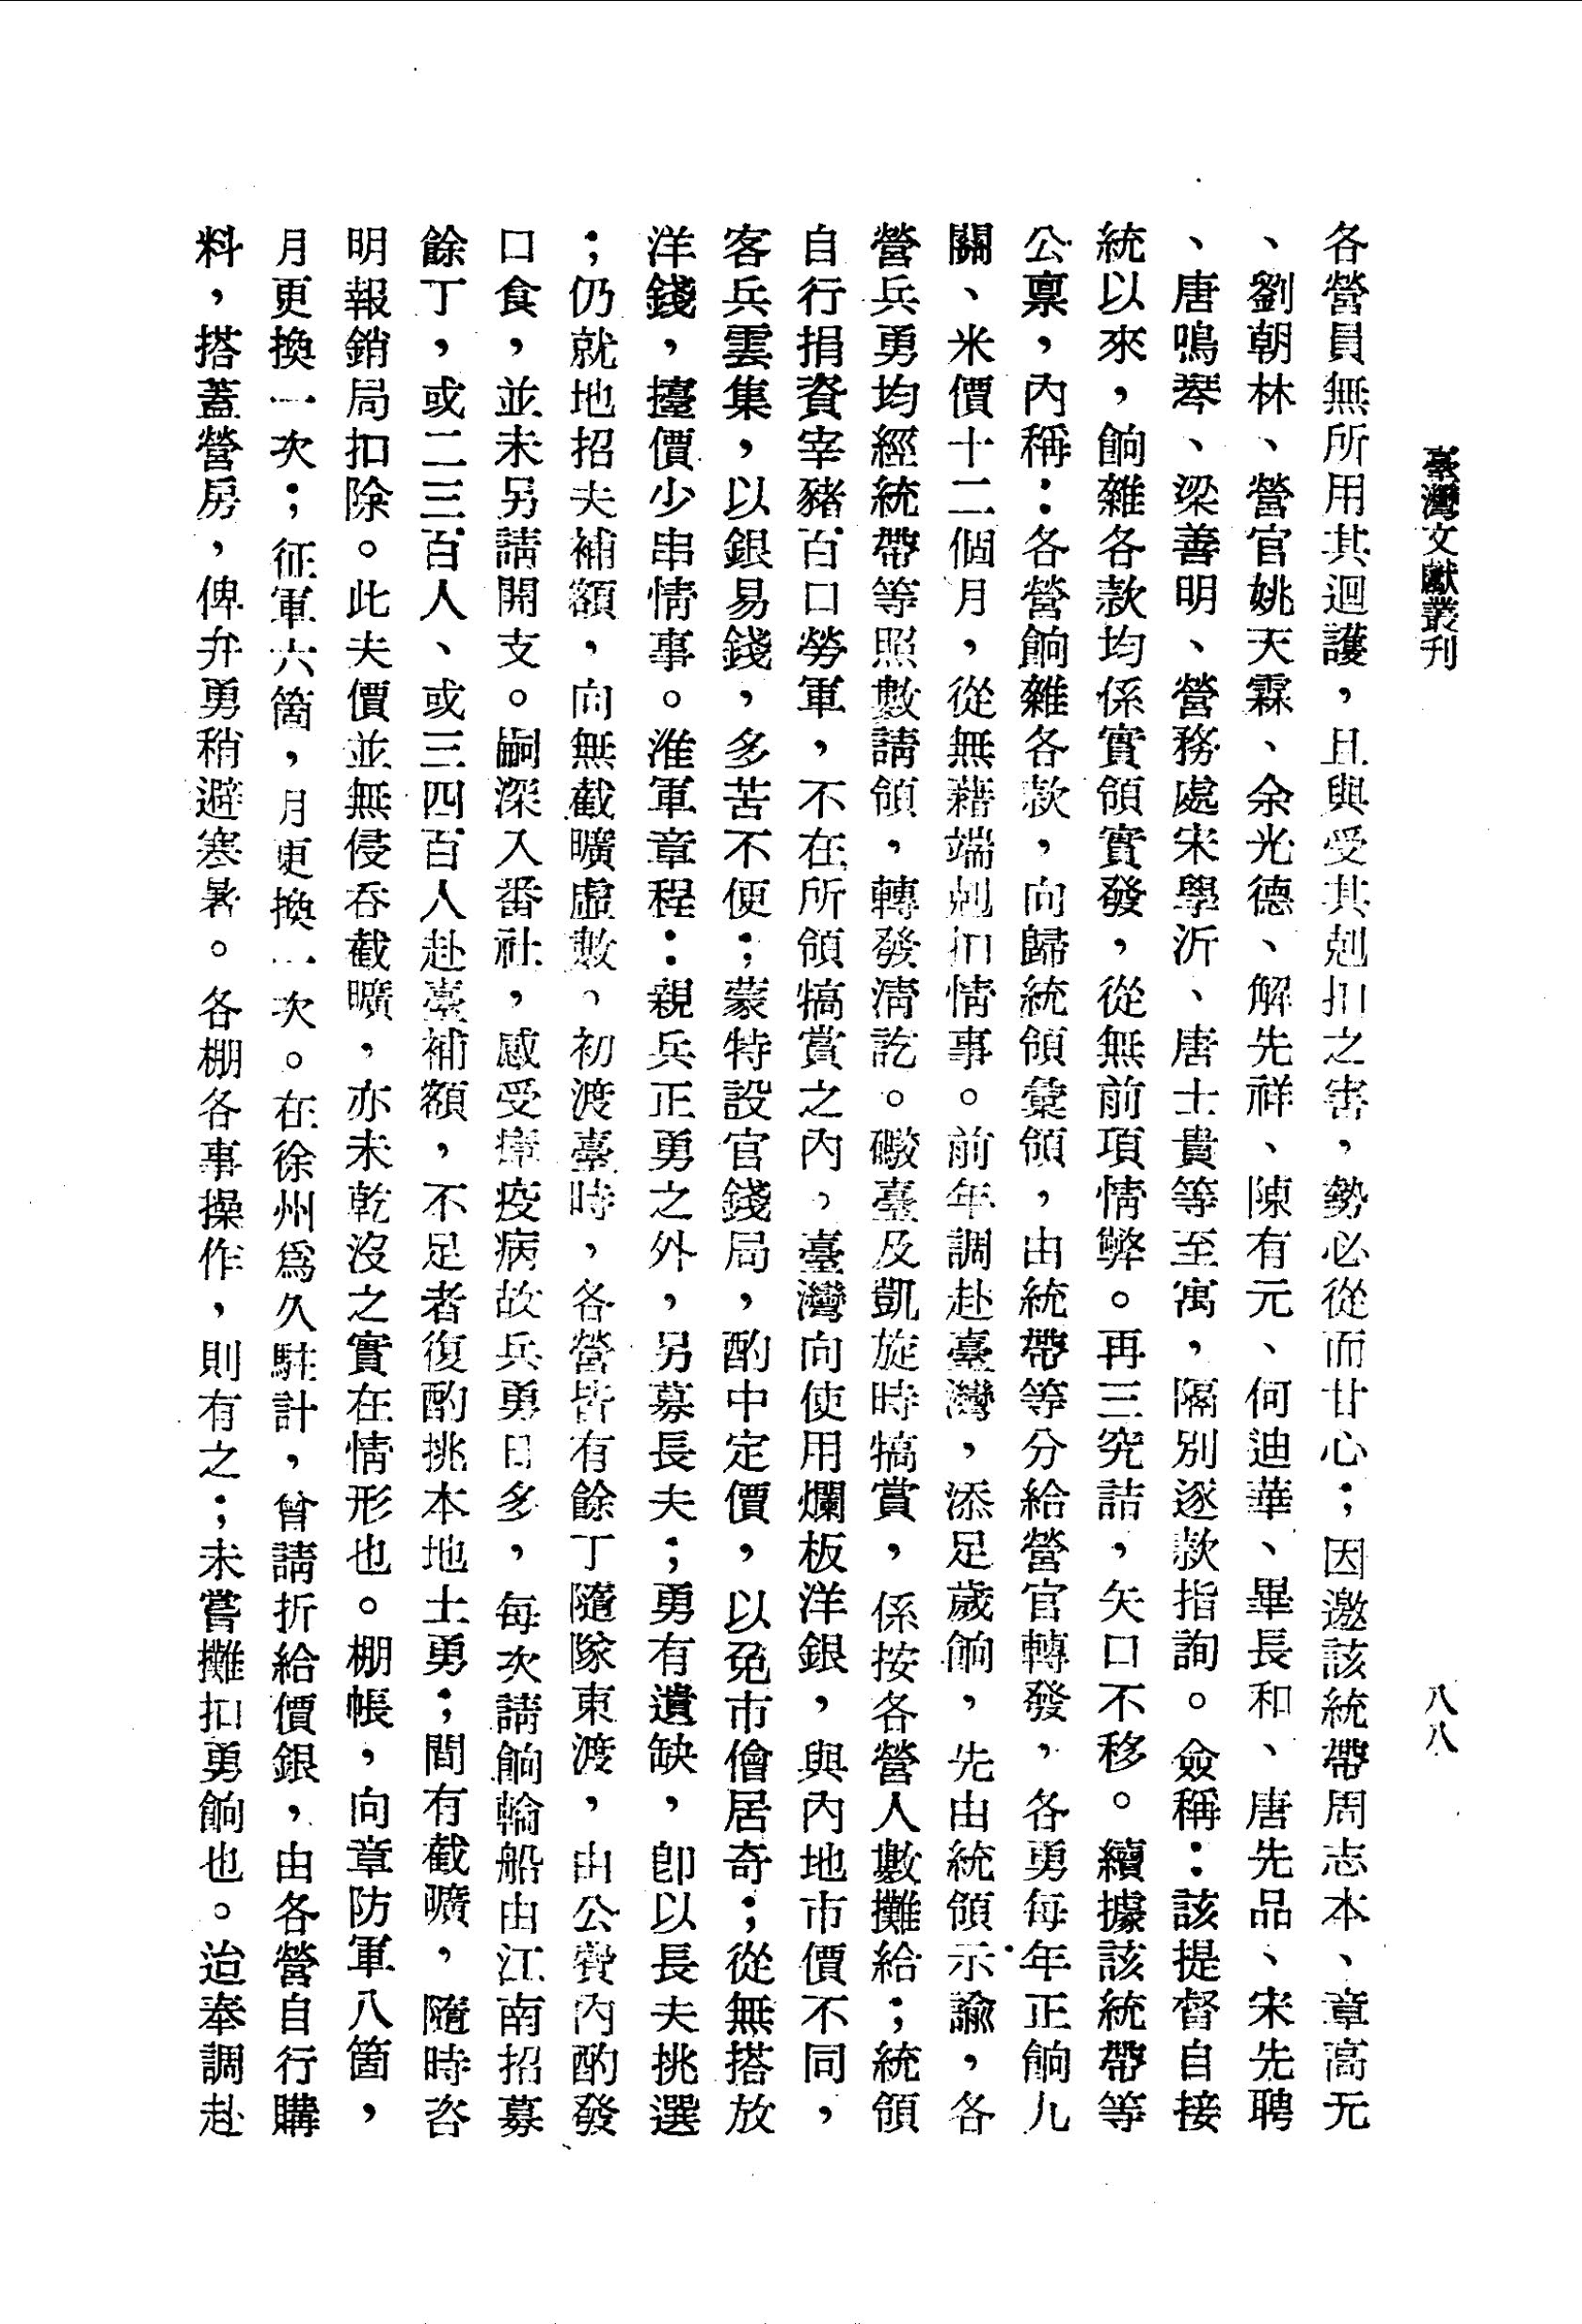 臺灣文獻叢刊
八八
各營員無所用其迴護，且與受其剋扣之害，勢必從而甘心；因邀該統帶周志本、章高元
、劉朝林、營官姚天霖、余光德、解先祥、陳有元、何迪華、畢長和、唐先品、宋先聘
、唐鳴琴、梁善明、營務處宋學沂、唐士貴等至寓，隔別逐款指詢。僉稱：該提督自接
統以來，餉雜各款均係實領實發，從無前項情弊。再三究詰，矢口不移。續據該統帶等
公稟，內稱：各營餉雜各款，向歸統領彙領，由統帶等分給營官轉發，各勇每年正餉九
關、米價十二個月，從無藉端剋扣情事。前年調赴臺灣，添足歲餉，先由統領示諭，各
營兵勇均經統帶等照數請領，轉發清訖。礮臺及凱旋時犒賞，係按各營人數攤給；統領
自行捐資宰豬百口勞軍，不在所領犒賞之內。臺灣向使用爛板洋銀，與內地市價不同，
客兵雲集，以銀易錢，多苦不便；蒙特設官錢局，酌中定價，以免市儈居奇；從無搭放
洋錢，擡價少串情事。淮軍章程：親兵正勇之外，另募長夫；勇有遺缺，卽以長夫挑選
；仍就地招夫補額，向無截曠虛數。初渡臺時，各營皆有餘丁隨隊東渡，由公費內酌發
口食，並未另請開支。嗣深入番社，感受瘴疫病故兵勇日多，每次請餉輪船由江南招募
餘丁，或二三百人、或三四百人赴臺補額，不足者復酌挑本地土勇；間有截曠，隨時咨
明報銷局扣除。此夫價並無侵吞截曠，亦未乾沒之實在情形也。棚帳，向章防軍八箇，
月更換一次；征軍六箇，月更換一次。在徐州爲久駐計，曾請折給價銀，由各營自行購
料，搭蓋營房，俾弁勇稍避寒暑。各棚各事操作，則有之；未嘗攤扣勇餉也。迨奉調赴